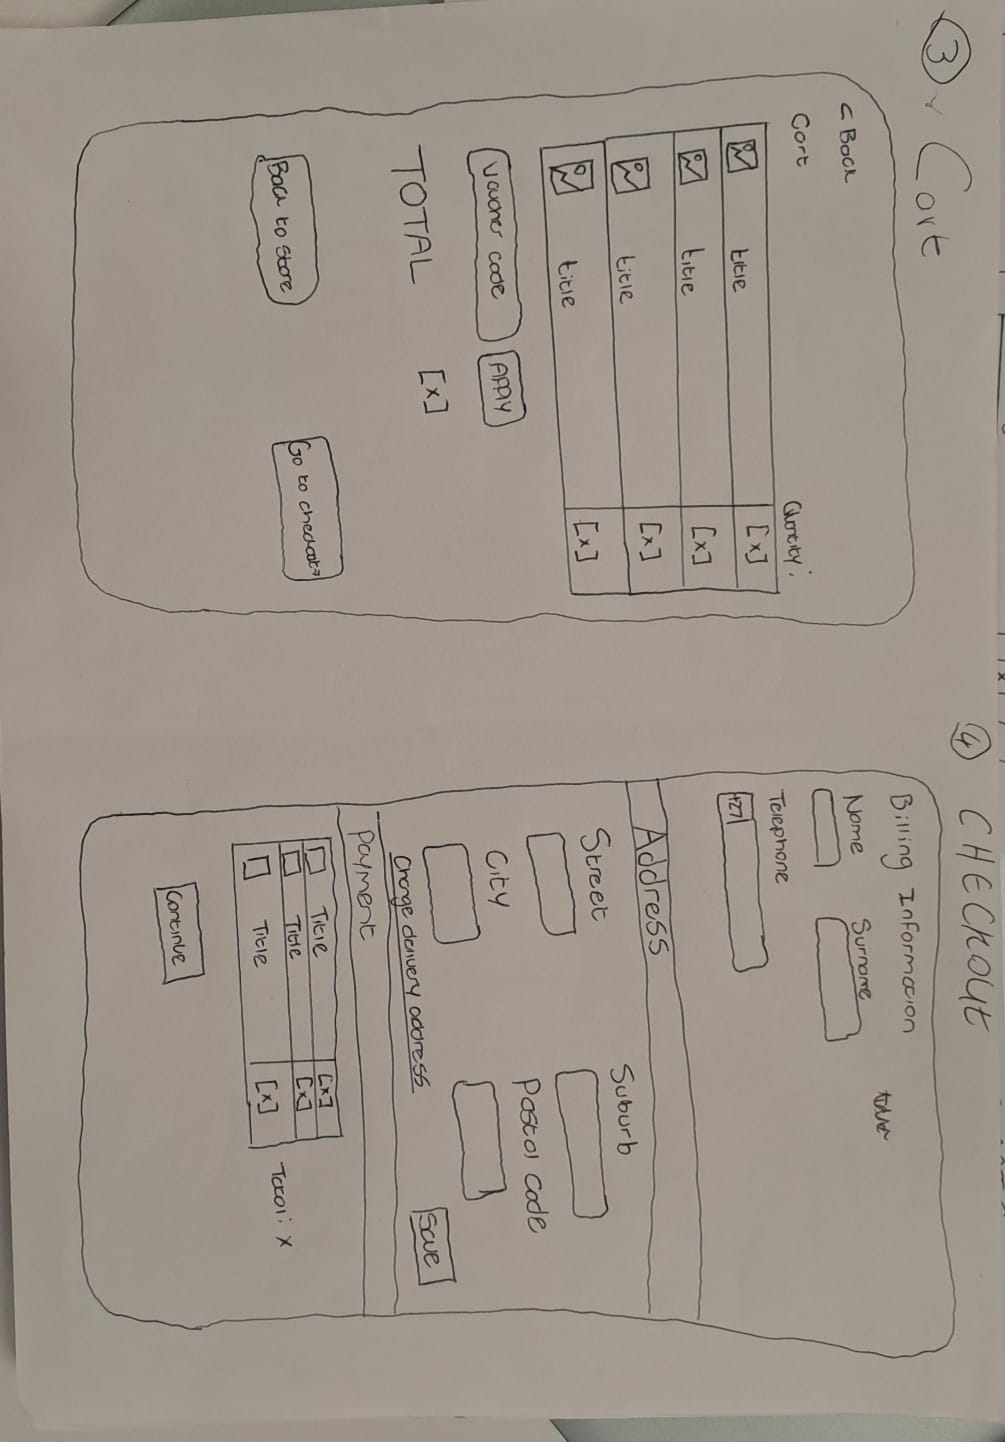 ③ Cart
< Back
Cart
Quantity:
title [x]
title [x]
title [x]
title [x]
Voucher code APPLY
TOTAL [x]
Back to store
Go to checkout >
④ CHECKOUT
Billing Information
Name Surname
Telephone
+27
Address
Street Suburb
City Postal code
Change delivery address
Save
Payment
Title [x]
Title [x]
Title [x]
Total: x
Continue